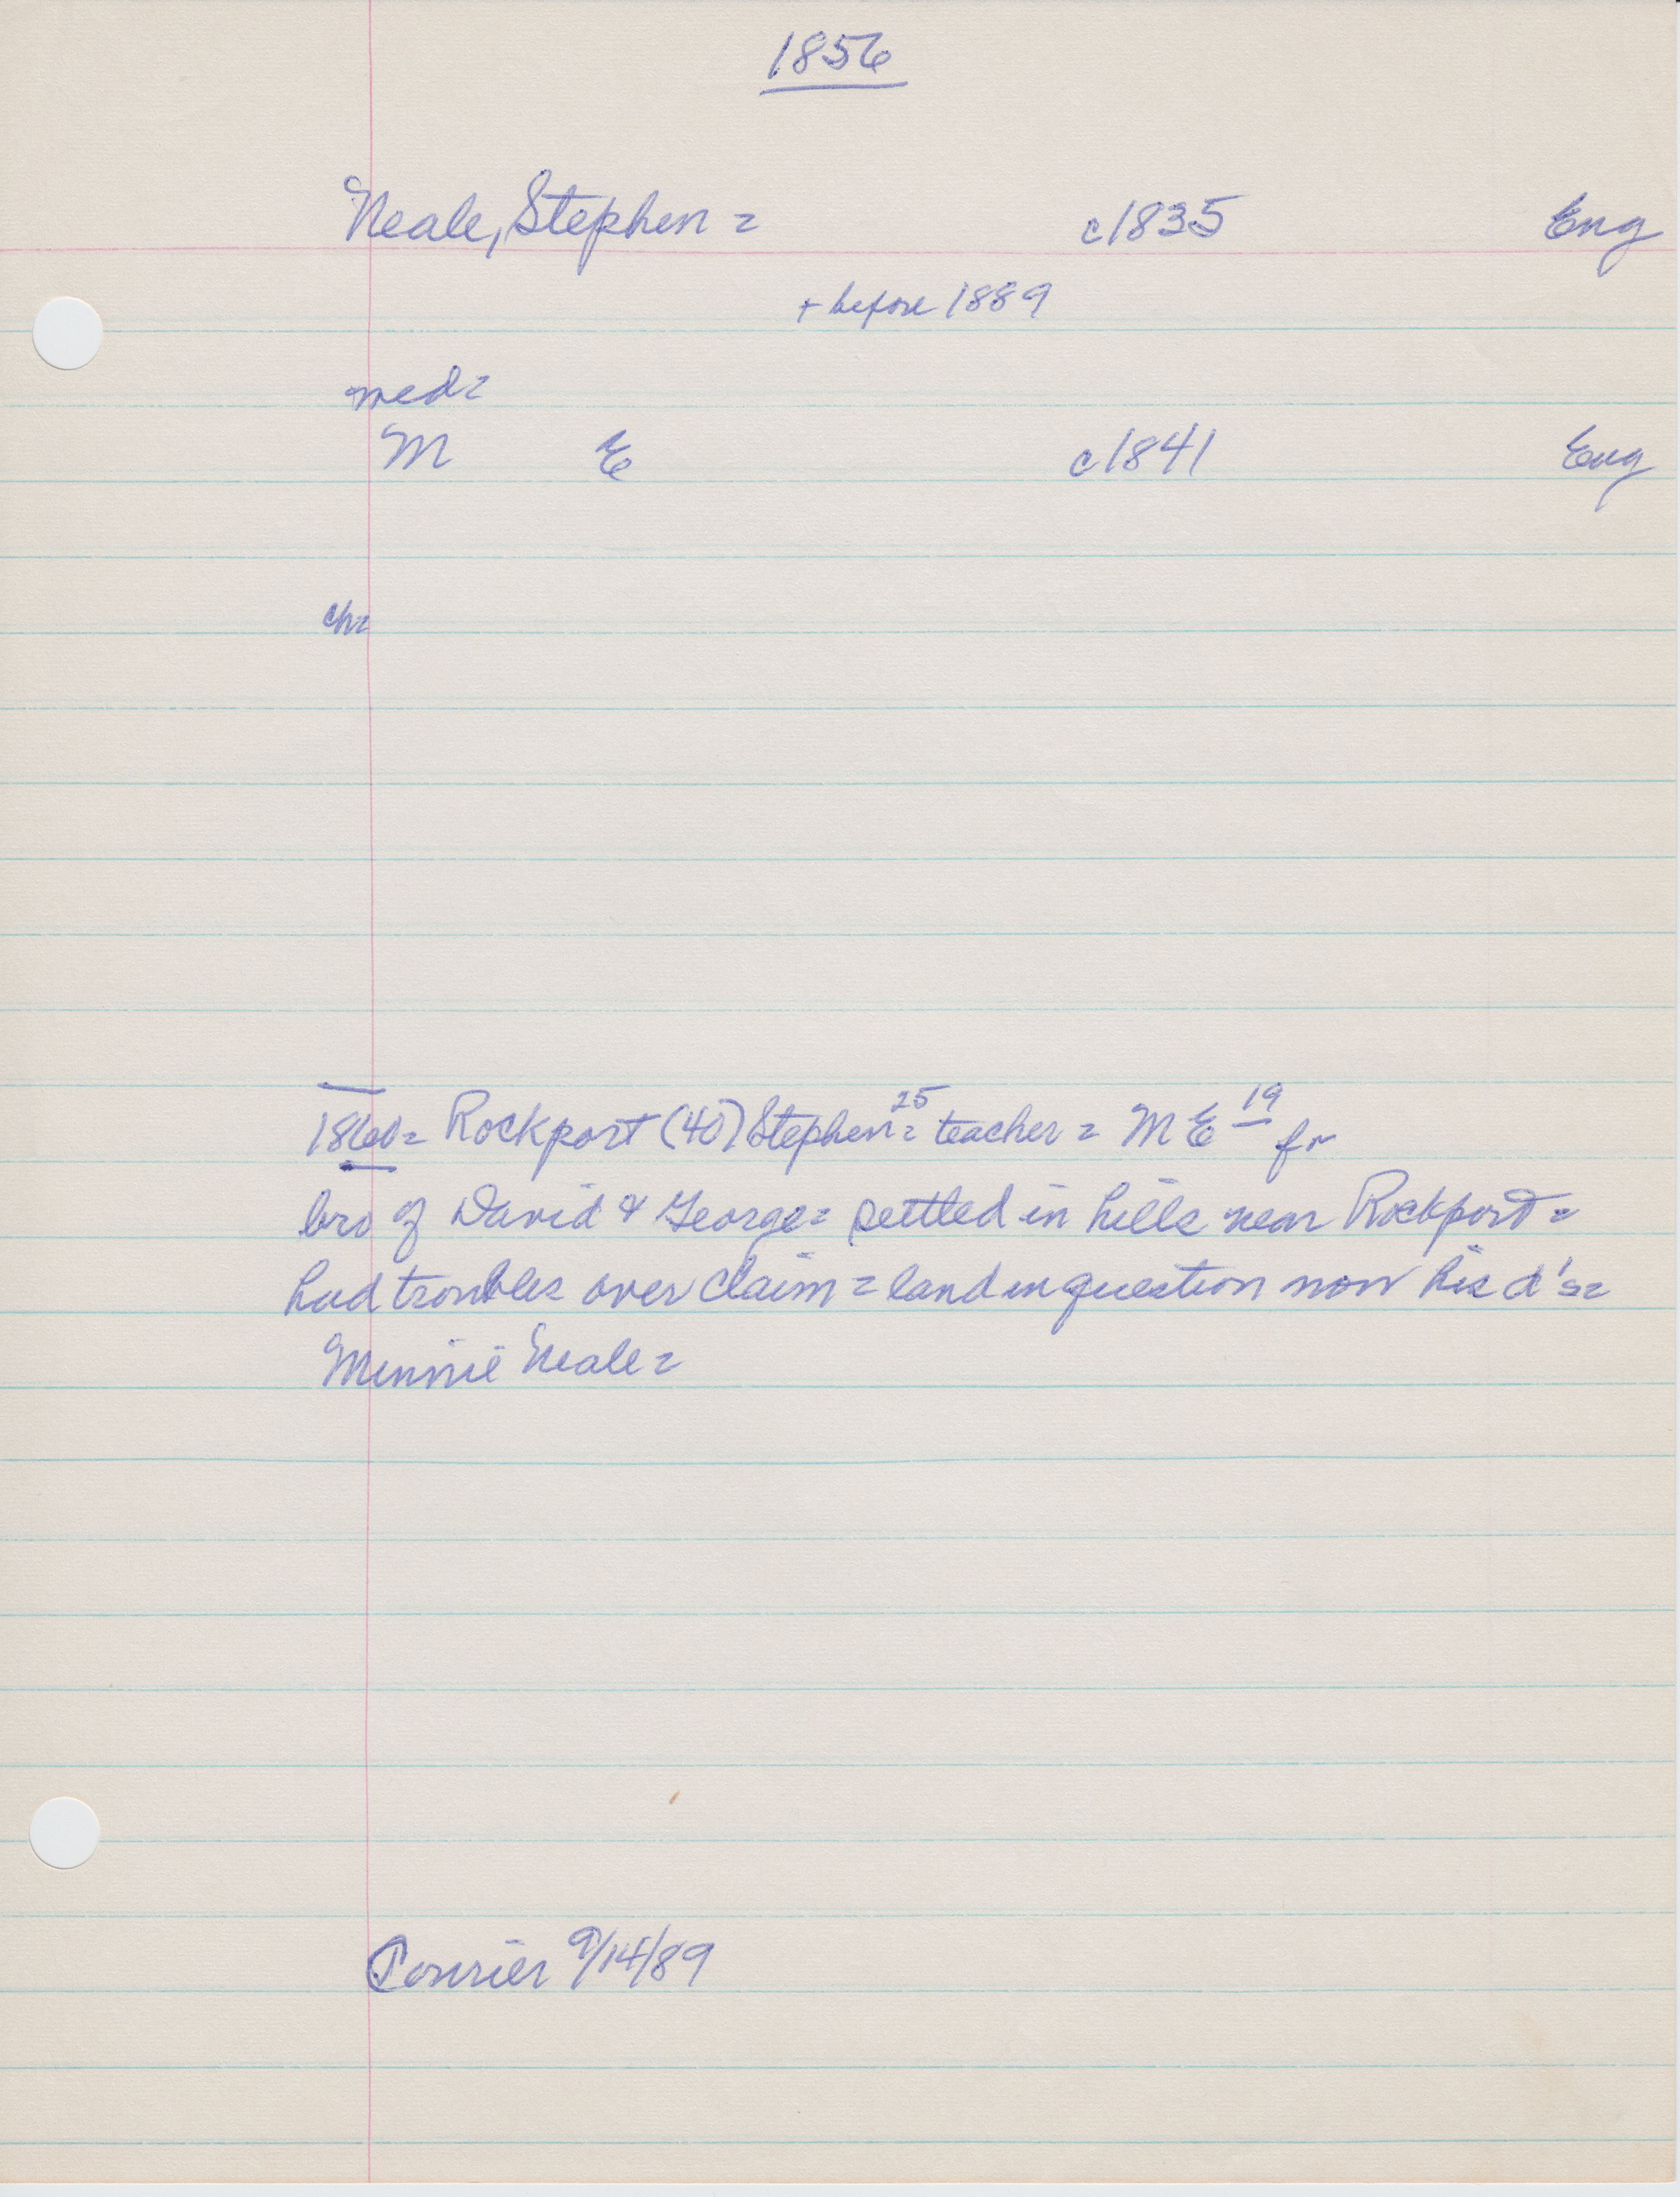 1856
Neale, Stephen = c1835 Eng
+ before 1889
med=
M E c1841 Eng
ch=
1860= Rockport (40) Stephen 25 = teacher = M E 19 fr
bro of David & George= settled in hills near Rockport =
had troubles over claim = land in question now his d's=
Minnie Neale =
Courier 9/14/89